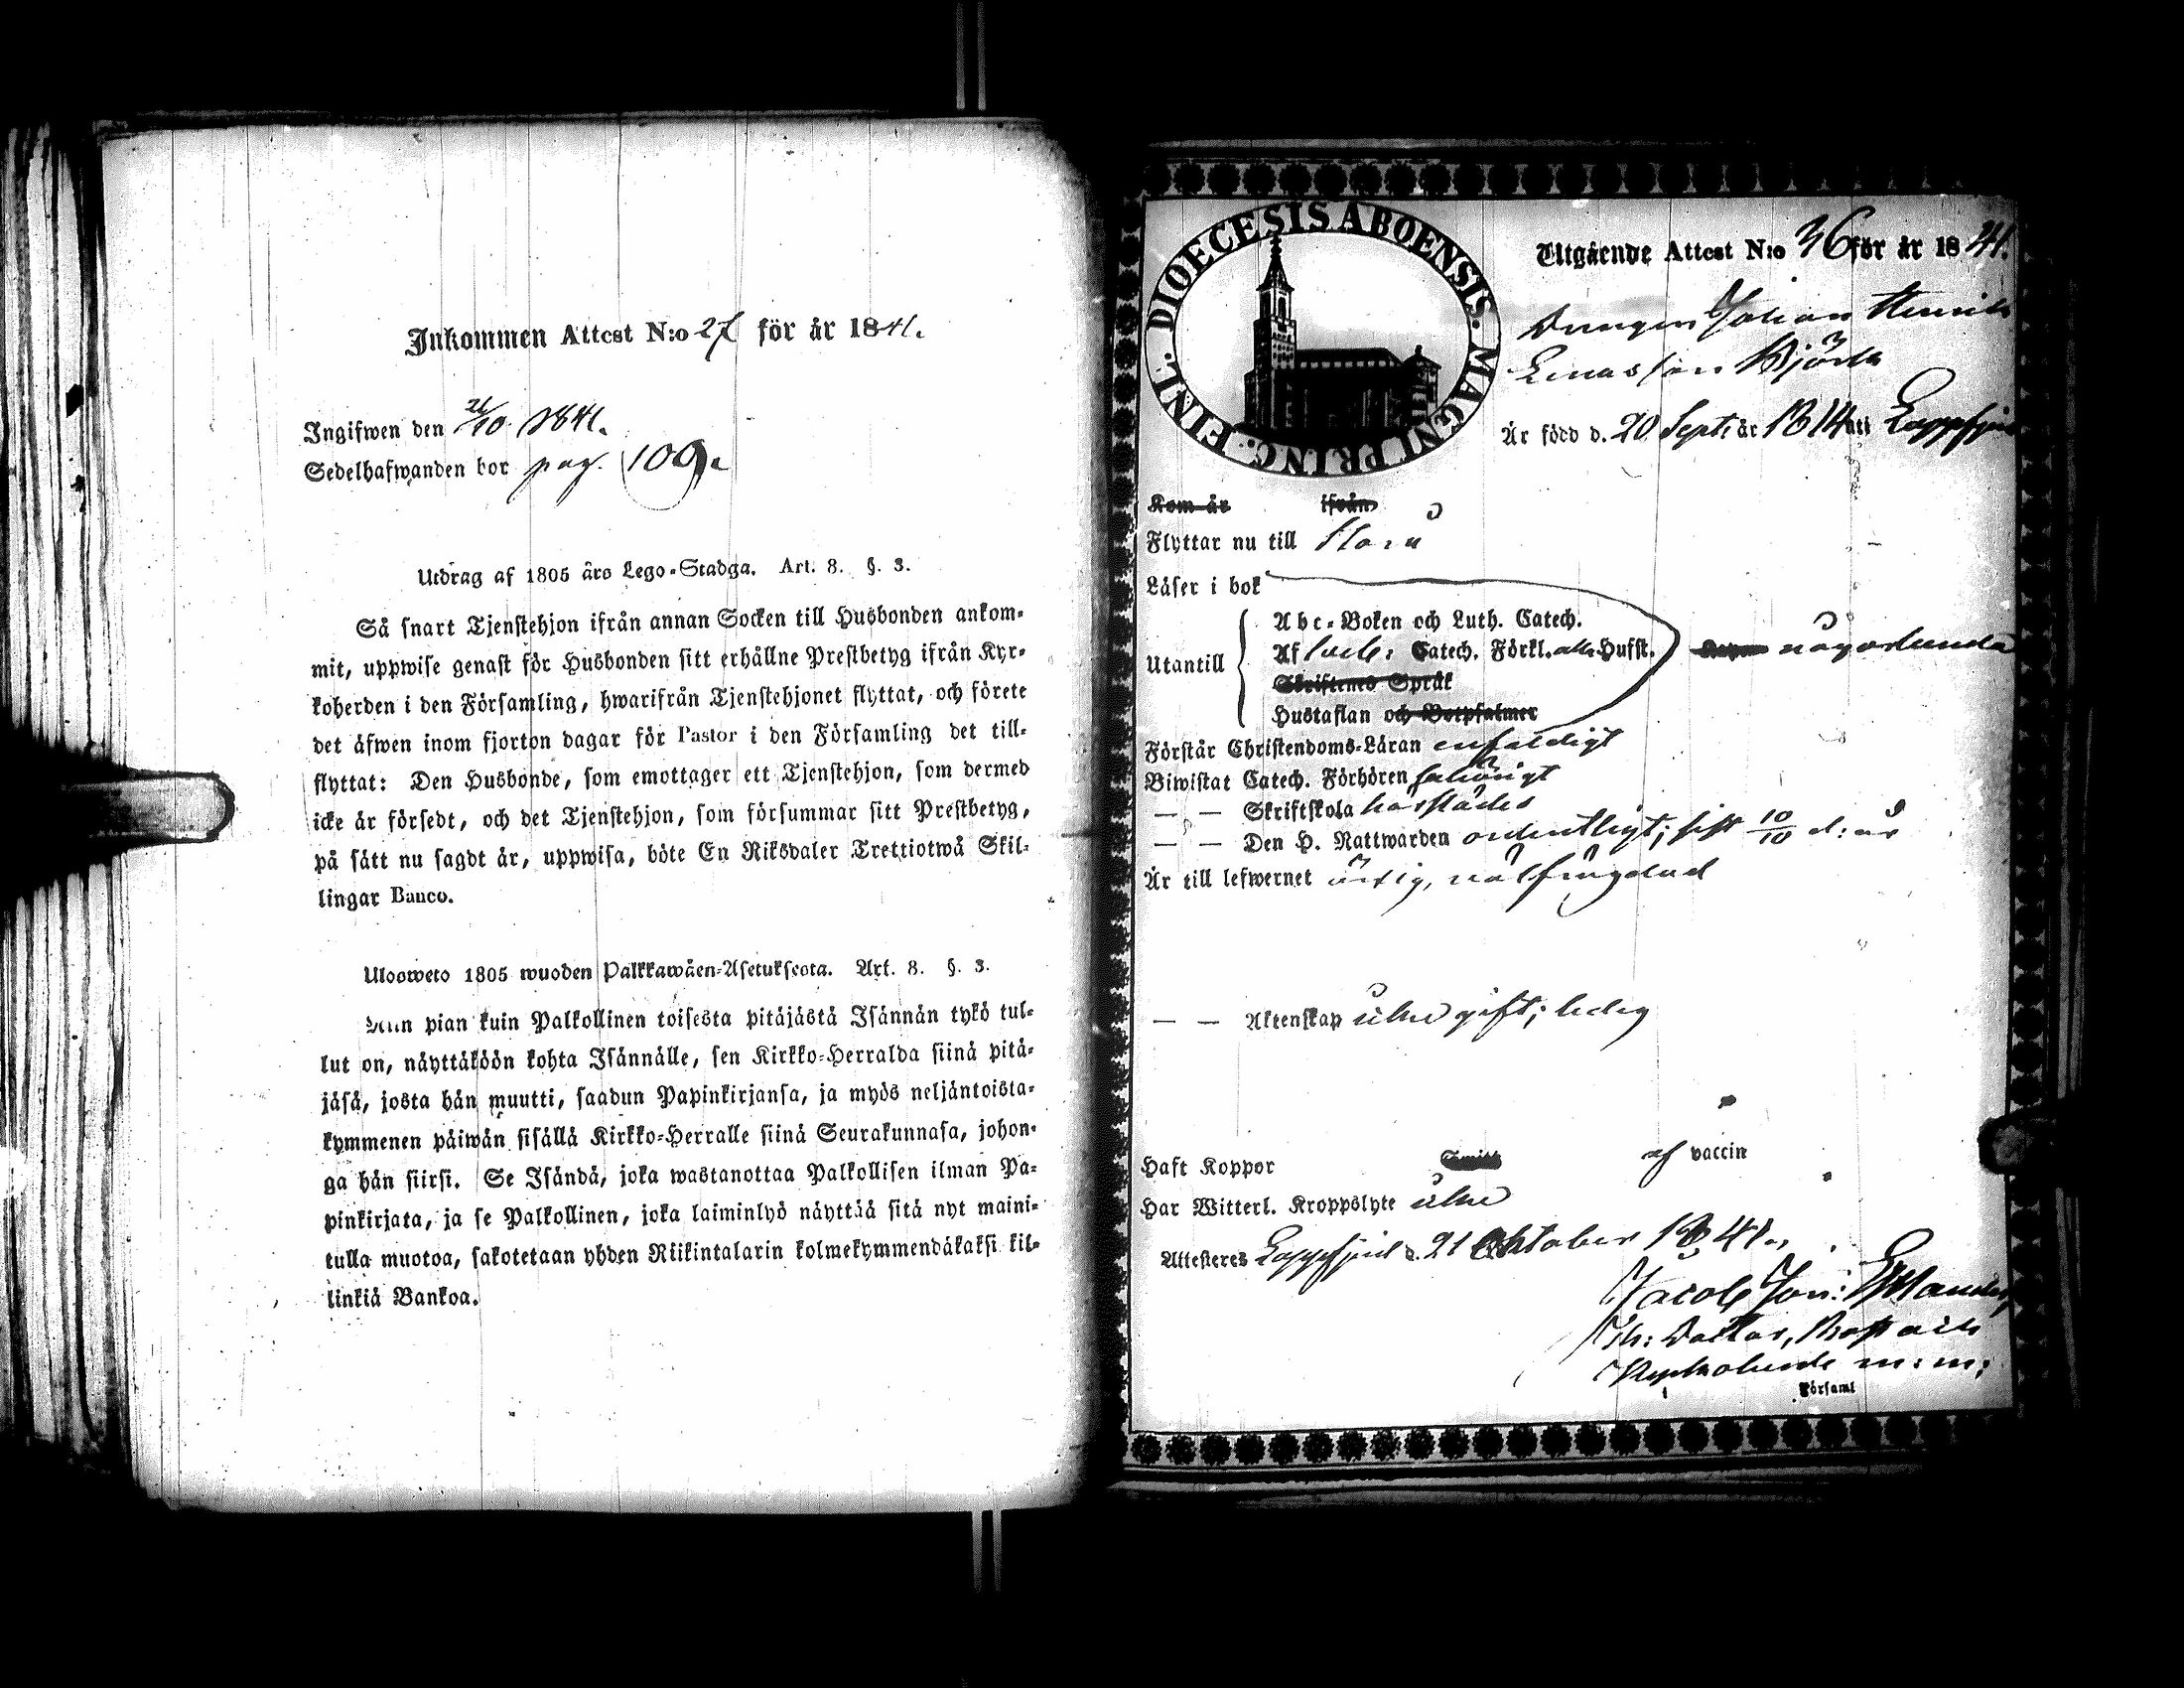 Inkommen Attest N:o 27 för år 1841.
Ingifwen den 26/10 1841.
Sedelhafwanden bor pag. 109.
Utdrag af 1805 års Lego-Stadga. Art. 8. §. 3.
Så snart Tjenstehjon ifrån annan Socken till Husbonden ankom-
mit, uppwise genast för Husbonden sitt erhållne Prestbetyg ifrån Kyr-
koherden i den Församling, hwarifrån Tjenstehjonet flyttat, och förete
det äfwen inom fjorton dagar för Pastor i den Församling det till-
flyttat: Den Husbonde, som emottager ett Tjenstehjon, som dermed
icke är försedt, och det Tjenstehjon, som försummar sitt Prestbetyg,
på sätt nu sagdt är, uppwisa, böte En Riksdaler Trettiotwå Skil-
lingar Banco.
Ulosweto 1805 wuoden Palkkawäen-Asetuksesta. Art. 8. §. 3.
pian kuin Palkollinen toisesta pitäjästä Isännän tykö tul-
lut on, näyttäköön kohta Isännälle, sen Kirkko-Herralda siinä pitä-
jäsä, josta hän muutti, saadun Papinkirjansa, ja myös neljäntoista-
kymmenen päiwän sisällä Kirkko-Herralle siinä Seurakunnasa, johon-
ga hän siirsi. Se Isändä, joka wastanottaa Palkollisen ilman Pa-
pinkirjata, ja se Palkollinen, joka laiminlyö näyttää sitä nyt maini-
tulla muotoa, sakotetaan yhden Riikintalarin kolmekymmendäkaksi kil-
linkiä Bankoa.
DIOECESIS ABOENSIS. MAGNI PRINC. FINL.
Utgående Attest N:o 36 för år 1841.
Drengen Johan Henrik
Enasson Björk
Är född d. 20 Sept. år 1814 uti Lappfjerd
Kom år ifrån
Flyttar nu till
Läser i bok
Abc-Boken och Luth. Catech.
Utantill Af Catech. Förkl. Hufst. någorlunda
Skriftenes Språk
Hustaflan och Botpsalmer
Förstår Christendoms-Läran enfaldigt
Biwistat Catech. Förhören behörigt
— — Skriftskola härstädes
— — Den H. Nattwarden ordentligt; sist 10/10 d: år
Är till lefwernet ärlig, välfrägdad
— — Äktenskap icke gift; ledig
Haft Koppor Smitt af vaccin
Har Witterl. Kroppslyte icke
Attesteres Lappfjerd d. 21 Oktober 1841.
Jacob Jon:
Th: Doctor, Prost och
Kyrkoherde m: m:
Församl